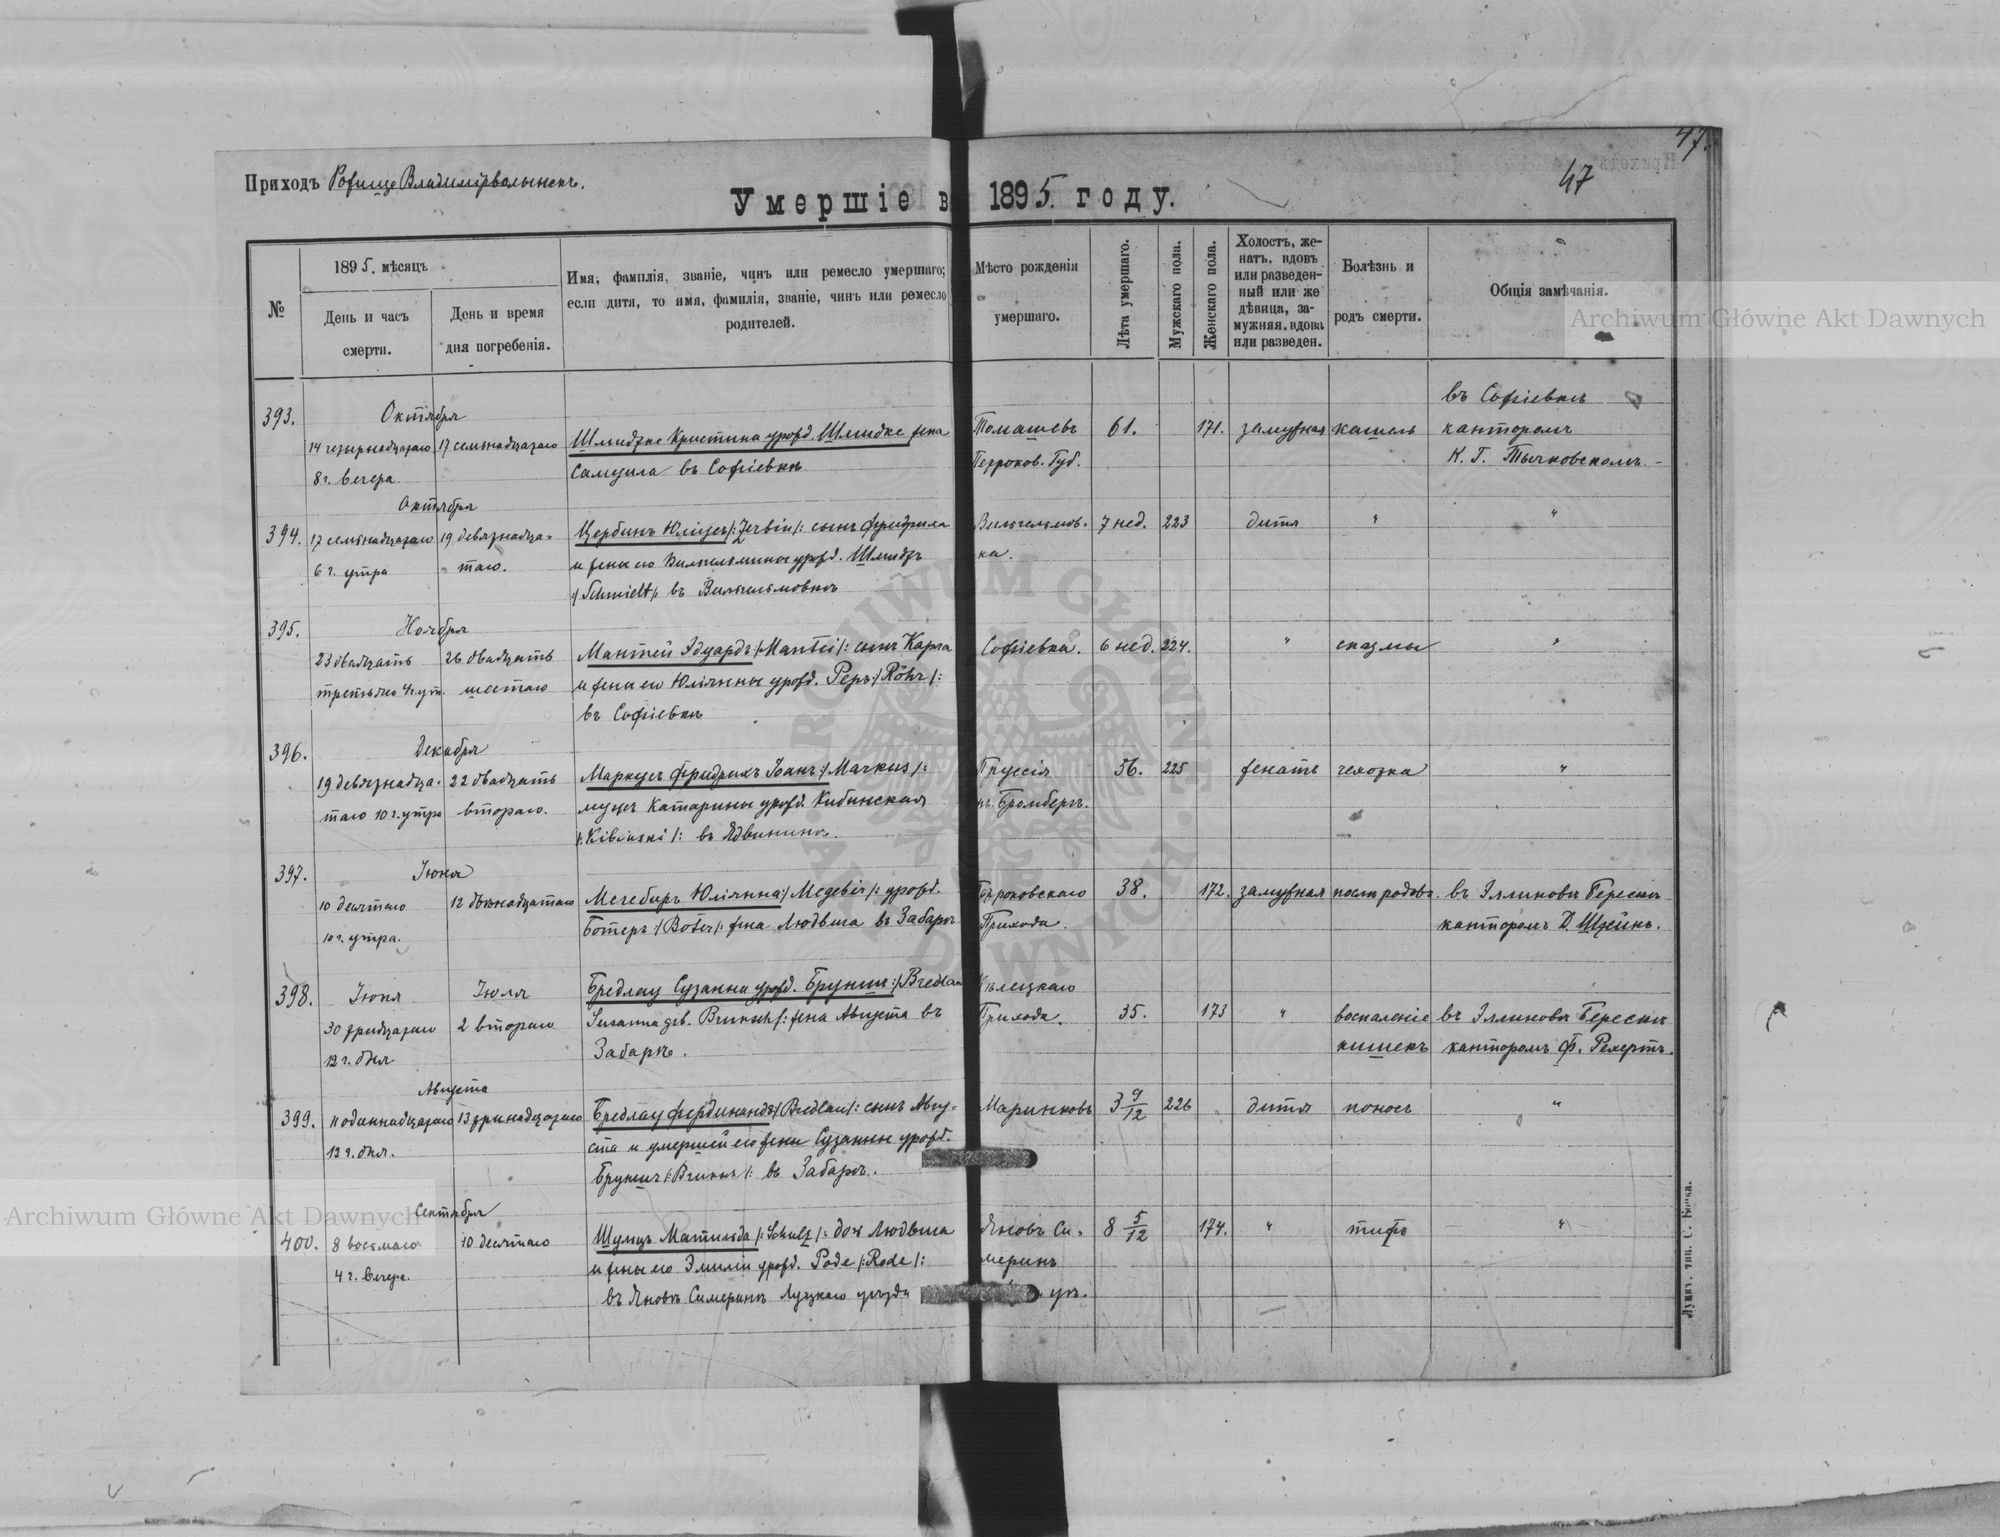 47.
47
Приходъ Рожище Владимірволынскъ.
Умершіе въ 1895. году.
№
1895, мѣсяцъ
День и часъ смерти.
День и время дня погребенія.
Имя, фамилія, званіе, чинъ или ремесло умершаго;
если дитя, то имя, фамилія, званіе, чинъ или ремесло
родителей.
Мѣсто рожденія
умершаго.
Лѣта умершаго.
Мужскаго пола.
Женскаго пола.
Холостъ, же-
натъ, вдовъ
или разведен-
ный или же
дѣвица, за-
мужняя, вдова
или разведен.
Болѣзнь и
родъ смерти.
Общія замѣчанія.
Archiwum Główne Akt Dawnych
393.
Октября
14 четырнадцатаго
8 г. вечера
17 семнадцатаго
Шмидтке Кристина урожд. Шмидке жена
Самуила въ Софіевкѣ
Томашевъ
Петроков. Губ.
61.
171.
замужняя
кашель
въ Софіевкѣ
канторомъ
К. Г. Тычковскомъ
394.
Октября
17 семнадцатаго
6 г. утра
19 девятнадца-
таго.
Цербинъ Юліусъ /: Zerbin /: сынъ Фридриха
и жены его Вильгельмины урожд. Шмидтъ
:/ Schmidt /: въ Вильгельмовкѣ
Вильгельмов-
ка.
7 нед.
223
дитя
"
"
395.
Ноября
23 двадцать
третьяго 4 г. ут.
26 двадцать
шестаго
Мантей Эдуардъ :/ Mantei /: сынъ Карла
и жены его Юліянны урожд. Реръ :/ Röhr /:
въ Софіевкѣ
Софіевка.
6 нед.
224.
"
спазмы
"
396.
Декабря
19 девятнадца-
таго 10 г. утра
22 двадцать
втораго.
Маркусъ Фридрихъ Іоанъ :/ Markus /:
мужъ Катарины урожд. Кибинская
/: Kibinski /: въ Ядвининѣ
Пруссія
Бромбергъ.
56.
225
женатъ
чехотка
"
397.
Іюня
10 десятаго
10 г. утра.
12 двѣнадцатаго
Юліянна
Ботеръ :/ Boter /: жена Людвига въ Забарѣ
Прихода.
38.
172.
замужняя
послѣ родовъ
въ Эллиновѣ Берескѣ
канторомъ Д. Штейнъ.
398.
Іюня
30 тридцатаго
12 г. дня
Іюля
2 втораго
Бредлау Сузанна урожд. Брунш :/ Bredlau
Susanna geb. Brunsch /: жена Августа въ
Забарѣ.
Кѣлецкаго
Прихода.
35.
173
"
воспаленіе
кишекъ
въ Эллиновѣ Берескѣ
канторомъ Ф. Рехертъ.
399.
Августа
11 одиннадцатаго
12 г. дня.
13 тринадцатаго
Бредлау Фердинандъ :/ Bredlau /: сынъ Авгу-
ста и умершей его жены Сузанны урожд.
Въ Забарѣ.
Маринковъ
3 9/12
226
дитя
поносъ
"
400.
Сентября
8 восьмаго
4 г. вечера.
10 десятаго
Шульцъ Матильда /: Schulz /: дочь Людвига
и жены его Эмиліи урожд. Роде /: Rode /:
въ Яновѣ Симеринѣ Луцкаго уѣзда
Яновъ Си-
меринъ
уѣ.
8 5/12
174.
"
тифъ
"
Луцкъ. тип. С. Бока.
Archiwum Główne Akt Dawnych
ARCHIWUM GŁÓWNE AKT DAWNYCH